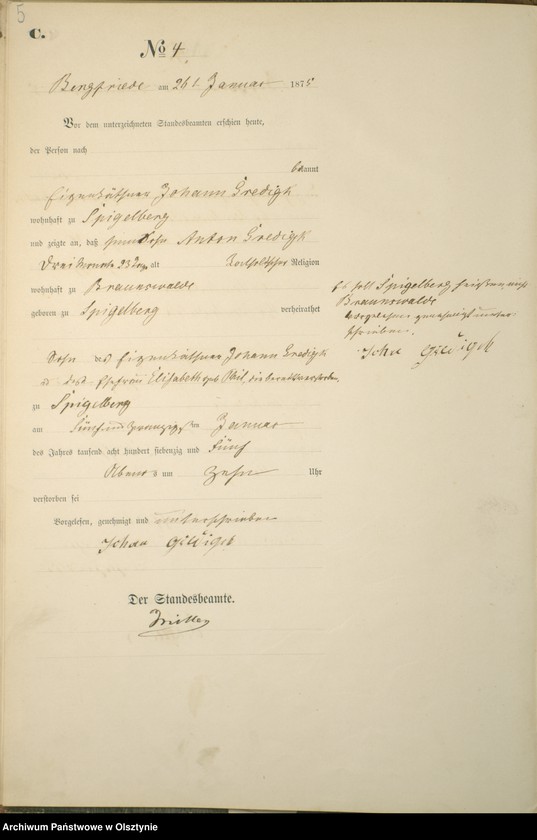 5
C.
No 4
Bergfriede am 26t Januar 1875
Vor dem unterzeichneten Standesbeamten erschien heute,
der Person nach
bekannt
Eigenkäthner Johann Gredigk
wohnhaft zu Spigelberg
und zeigte an, daß sein Sohn Anton Gredigk
drei Monate 23 Tage alt Katholischer Religion
wohnhaft zu Braunswalde
geboren zu Spigelberg verheirathet
Es soll Spigelberg heißen nicht
Braunswalde
Vorgelesen genehmigt unter-
schrieben.
Sohn des Eigenkäthner Johann Gredigk
Ehefrau Elisabeth geb
zu Spigelberg
am Fünf und zwanzigsten Januar
des Jahres tausend acht hundert siebenzig und Fünf
Abends um Zehn Uhr
verstorben sei
Vorgelesen, genehmigt und unterschrieben
Der Standesbeamte.
Archiwum Państwowe w Olsztynie